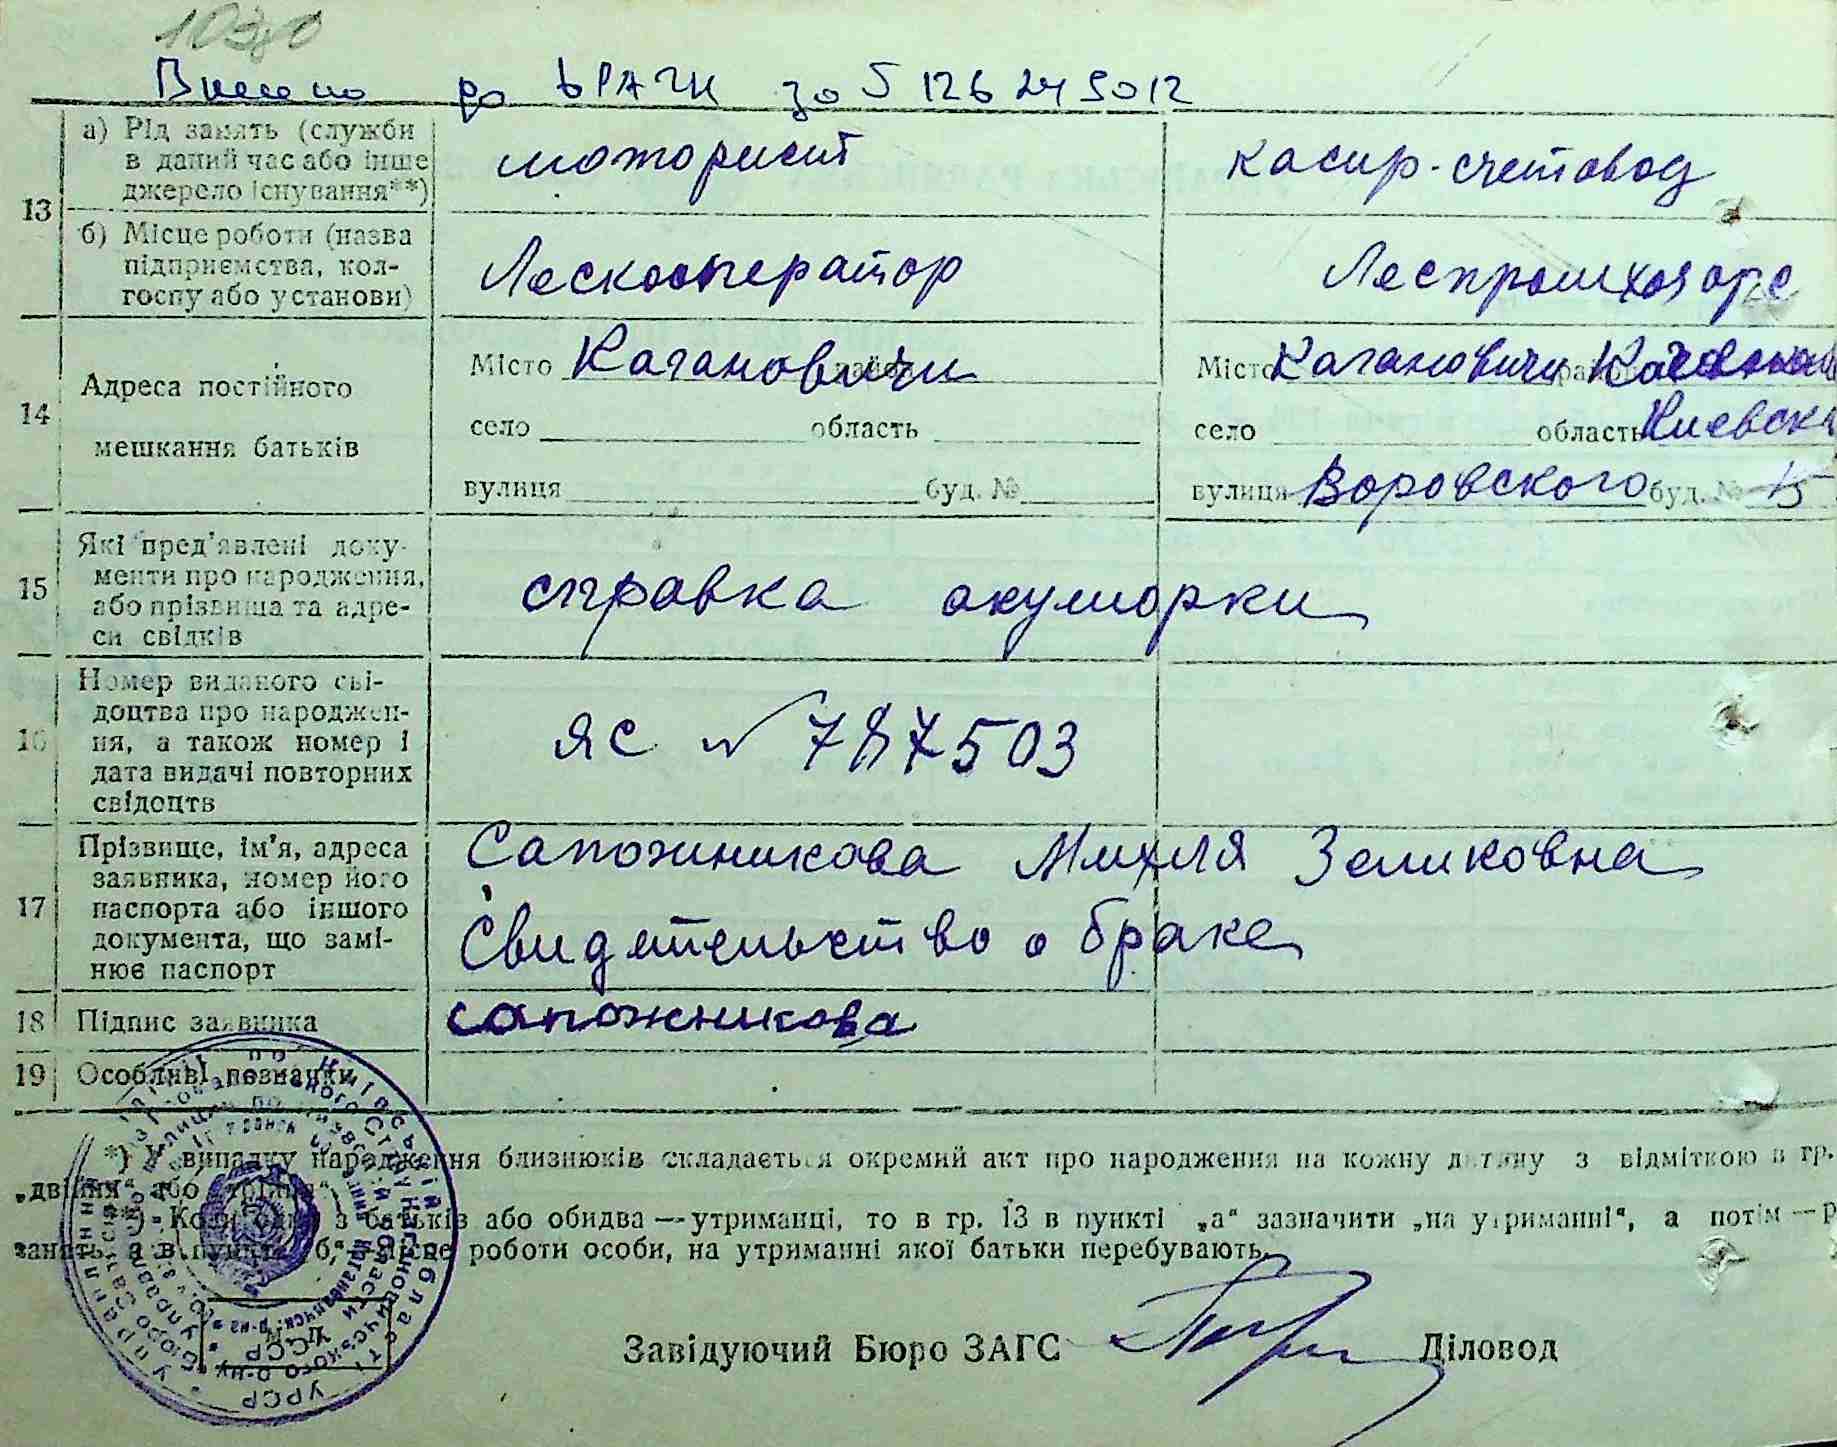 1030
Внесено до ДРАЦГ за № 126 245012
13
а) Рід занять (служби в даний час або інше джерело існування**)
моторист
касир-счетовод
б) Місце роботи (назва підприємства, колгоспу або установи)
Лескооператор
Леспромхоз
14
Адреса постійного мешкання батьків
Місто Кагановичи
село область
вулиця буд. №
Місто Кагановичи
село область Киевска
вулиця Воровского буд. № 15
15
Які пред'явлені документи про народження, або прізвища та адреси свідків
справка акушорки
16
Номер виданого свідоцтва про народження, а також номер і дата видачі повторних свідоцтв
ЯС № 787503
17
Прізвище, ім'я, адреса заявника, номер його паспорта або іншого документа, що замінює паспорт
Сапожникова Михля Зеликовна
Свидетельство о браке
18 Підпис заявника
сапожникова
19 Особливі позначки
*) У випадку народження близнюків складається окремий акт про народження на кожну дитину з відміткою в гр.
„двійня“ або „трійня“.
**) Коли один з батьків або обидва — утриманці, то в гр. 13 в пункті „а“ зазначити „на утриманні“, а потім — р
занять, а в пункті „б“ — місце роботи особи, на утриманні якої батьки перебувають.
Завідуючий Бюро ЗАГС Діловод
УРСР